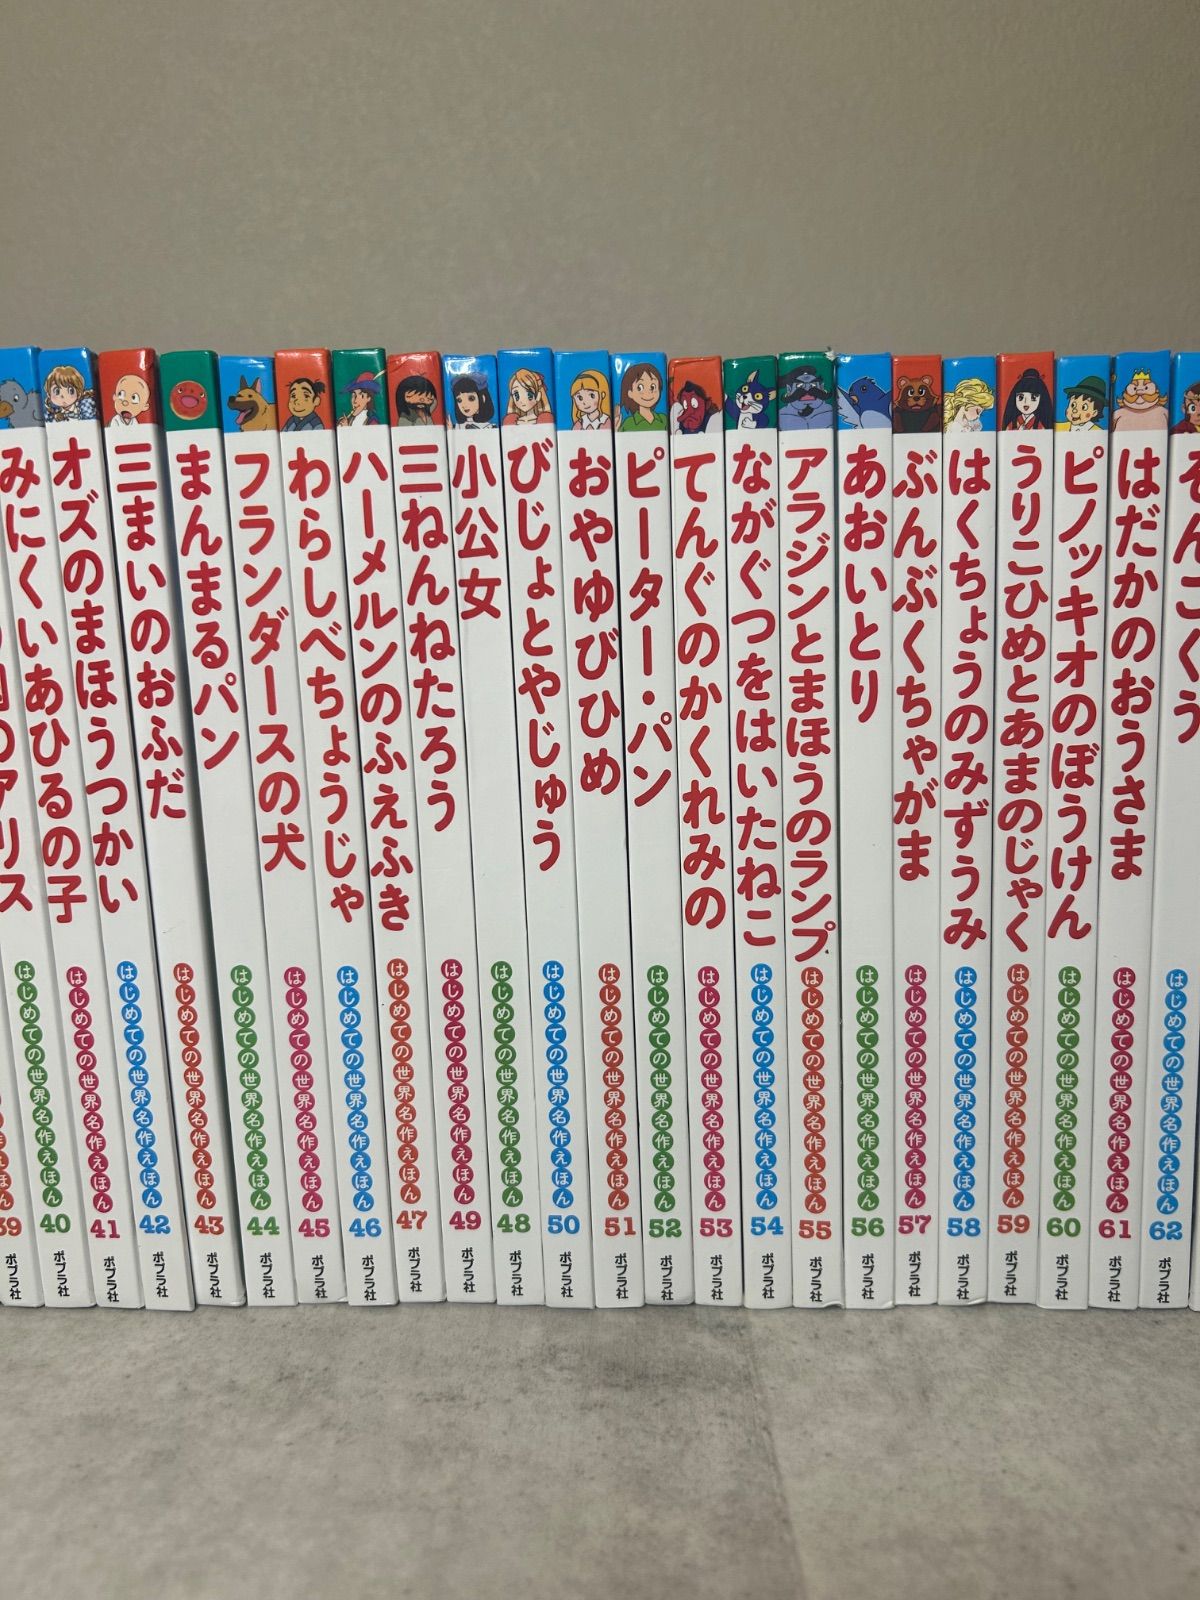 の国のアリス
はじめての世界名作えほん
39
ポプラ社
はじめての世界名作えほん
40
ポプラ社
みにくいあひるの子
はじめての世界名作えほん
41
ポプラ社
オズのまほうつかい
はじめての世界名作えほん
42
ポプラ社
三まいのおふだ
はじめての世界名作えほん
43
ポプラ社
まんまるパン
はじめての世界名作えほん
44
ポプラ社
フランダースの犬
はじめての世界名作えほん
45
ポプラ社
わらしべちょうじゃ
はじめての世界名作えほん
46
ポプラ社
ハーメルンのふえふき
はじめての世界名作えほん
47
ポプラ社
三ねんねたろう
はじめての世界名作えほん
49
ポプラ社
小公女
はじめての世界名作えほん
48
ポプラ社
びじょとやじゅう
はじめての世界名作えほん
50
ポプラ社
おやゆびひめ
はじめての世界名作えほん
51
ポプラ社
ピーター・パン
はじめての世界名作えほん
52
ポプラ社
てんぐのかくれみの
はじめての世界名作えほん
53
ポプラ社
ながぐつをはいたねこ
はじめての世界名作えほん
54
ポプラ社
アラジンとまほうのランプ
はじめての世界名作えほん
55
ポプラ社
あおいとり
はじめての世界名作えほん
56
ポプラ社
ぶんぶくちゃがま
はじめての世界名作えほん
57
ポプラ社
はくちょうのみずうみ
はじめての世界名作えほん
58
ポプラ社
うりこひめとあまのじゃく
はじめての世界名作えほん
59
ポプラ社
ピノッキオのぼうけん
はじめての世界名作えほん
60
ポプラ社
はだかのおうさま
はじめての世界名作えほん
61
ポプラ社
そんごくう
はじめての世界名作えほん
62
ポプラ社